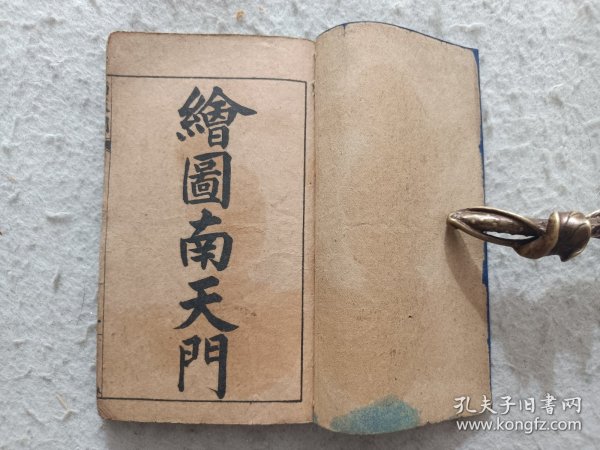 繪圖南天門
孔夫子旧書网
www.kongfz.com